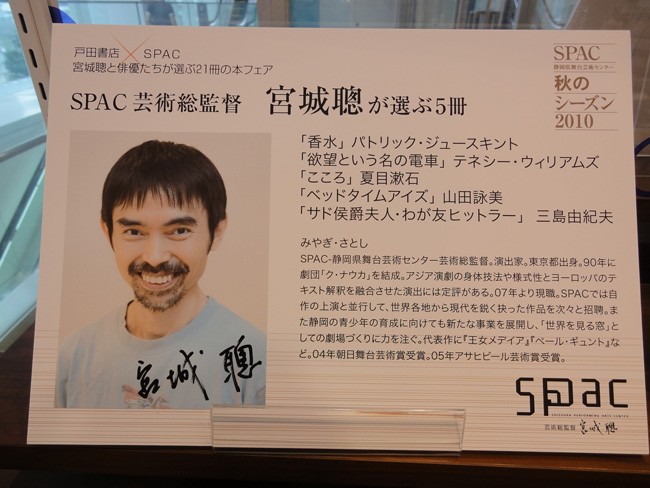 戸田書店×SPAC
宮城聰と俳優たちが選ぶ21冊の本フェア
SPAC 芸術総監督 宮城聰が選ぶ5冊
SPAC
静岡県舞台芸術センター
秋の
シーズン
2010
「香水」 パトリック・ジュースキント
「欲望という名の電車」 テネシー・ウィリアムズ
「こころ」 夏目漱石
「ベッドタイムアイズ」 山田詠美
「サド侯爵夫人・わが友ヒットラー」 三島由紀夫
みやぎ・さとし
SPAC-静岡県舞台芸術センター芸術総監督。演出家。東京都出身。90年に
劇団「ク・ナウカ」を結成。アジア演劇の身体技法や様式性とヨーロッパのテ
キスト解釈を融合させた演出には定評がある。07年より現職。SPACでは自
作の上演と並行して、世界各地から現代を鋭く抉った作品を次々と招聘。ま
た静岡の青少年の育成に向けても新たな事業を展開し、「世界を見る窓」と
しての劇場づくりに力を注ぐ。代表作に『王女メデイア』『ペール・ギュント』な
ど。04年朝日舞台芸術賞受賞。05年アサヒビール芸術賞受賞。
宮城 聰
spac
SHIZUOKA PERFORMING ARTS CENTER
芸術総監督 宮城 聰